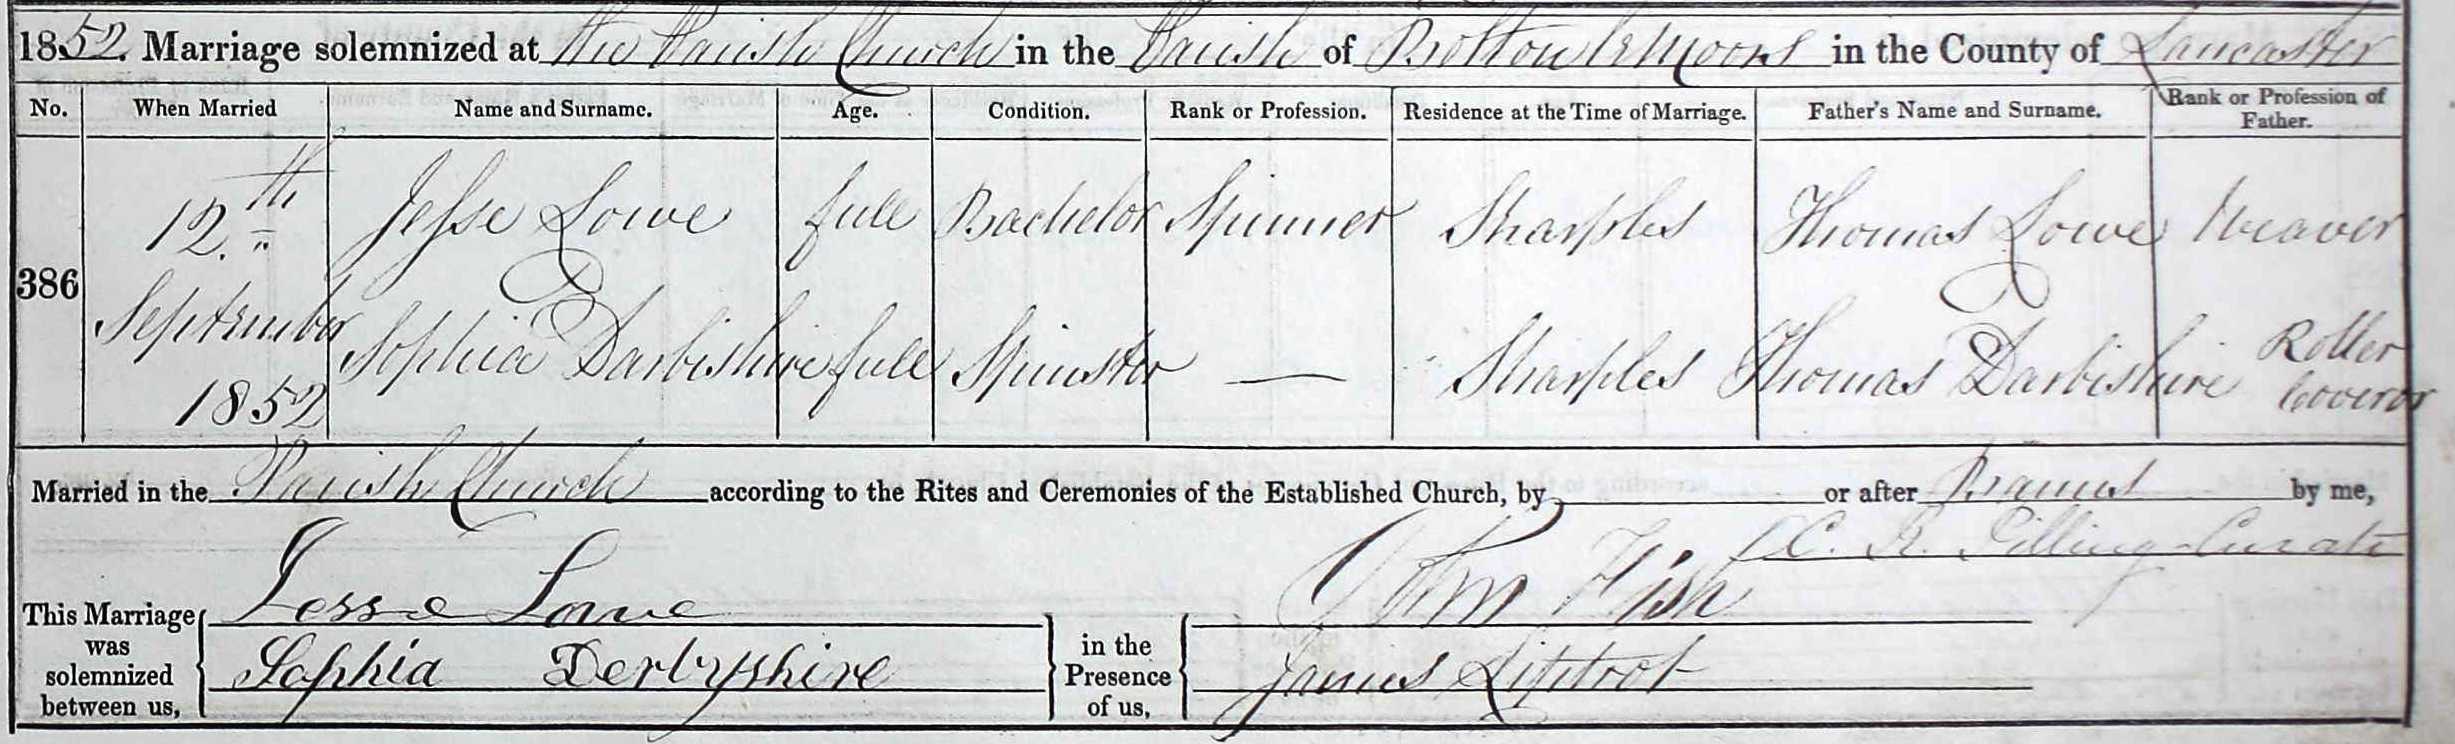 1852. Marriage solemnized at the Parish Church in the Parish of Bolton le Moors in the County of Lancaster
No. When Married Name and Surname. Age. Condition. Rank or Profession. Residence at the Time of Marriage. Father's Name and Surname. Rank or Profession of Father.
386 12.th September 1852
Jesse Lowe full Bachelor Spinner Sharples Thomas Lowe Weaver
Sophia Darbishire full Spinster — Sharples Thomas Darbishire Roller Coverer
Married in the Parish Church according to the Rites and Ceremonies of the Established Church, by or after Banns by me,
C. R. Pilling Curate
This Marriage was solemnized between us, Jesse Lowe Sophia Derbyshire in the Presence of us, John Fish James Liptrot